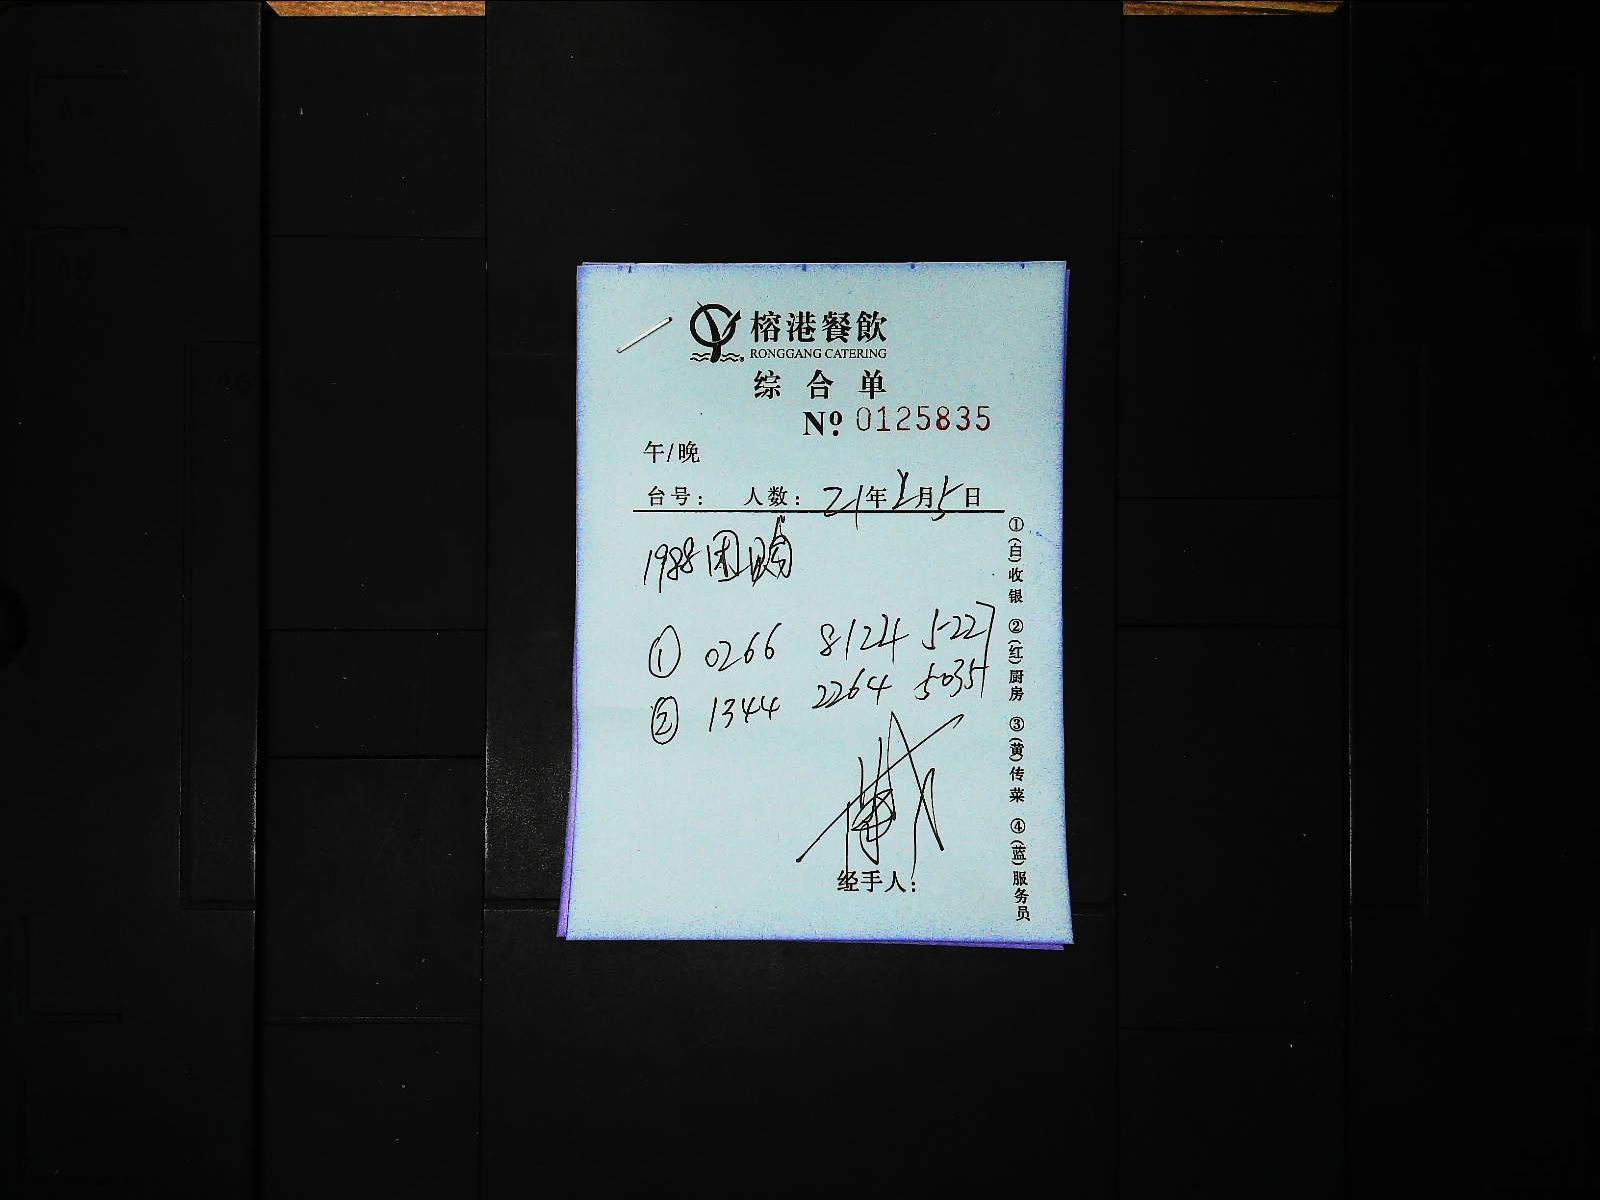 榕港餐飲
RONGGANG CATERING
综合单
Nº 0125835
午/晚
台号： 人数： 21年2月5日
1988团购
① 0266 8124 5227
② 1344 2264 5035
经手人：
①(白)收银 ②(红)厨房 ③(黄)传菜 ④(蓝)服务员